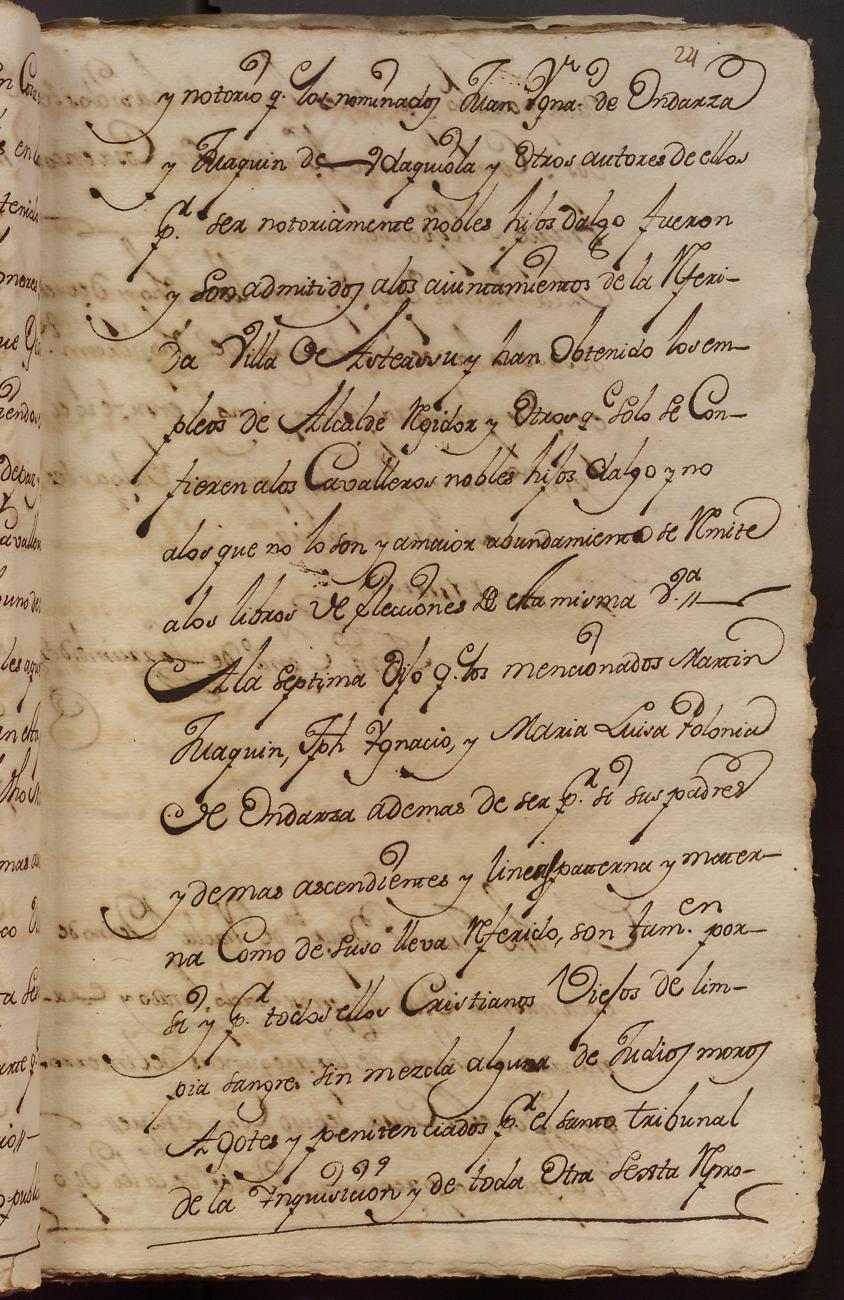 24
y notorio q.e los nominados Juan Ygna.o de Endarza
y Juaquin de Ydaquiola y Otros autores de ellos
p.r ser notoriamente nobles hijos dalgo fueron
y son admitidos alos aiuntamientos de la Referi-
da Villa de Asteassu y han Obtenido los em-
pleos de Alcalde Regidor y Otros q.e solo se Con-
fieren alos Cavalleros nobles hijos dalgo y no
alos que no lo son y amaior abundamiento se Remite
alos libros de elecciones de esta misma V.a
Ala septima Dijo q.e los mencionados Martin
Juaquin, Jph Ygnacio, y Maria Luisa Polonia
de Endarza ademas de ser p.r si sus padres
y demas ascendientes y lineas paterna y mater-
na Como de suso lleva Referido, son tam.en por
si y p.r todos ellos Cristianos Viejos de lim-
pia sangre sin mezcla alguna de Judios moros
Agotes y penitenciados p.r el santo tribunal
de la Ynquisicion y de toda Otra secta Repro-